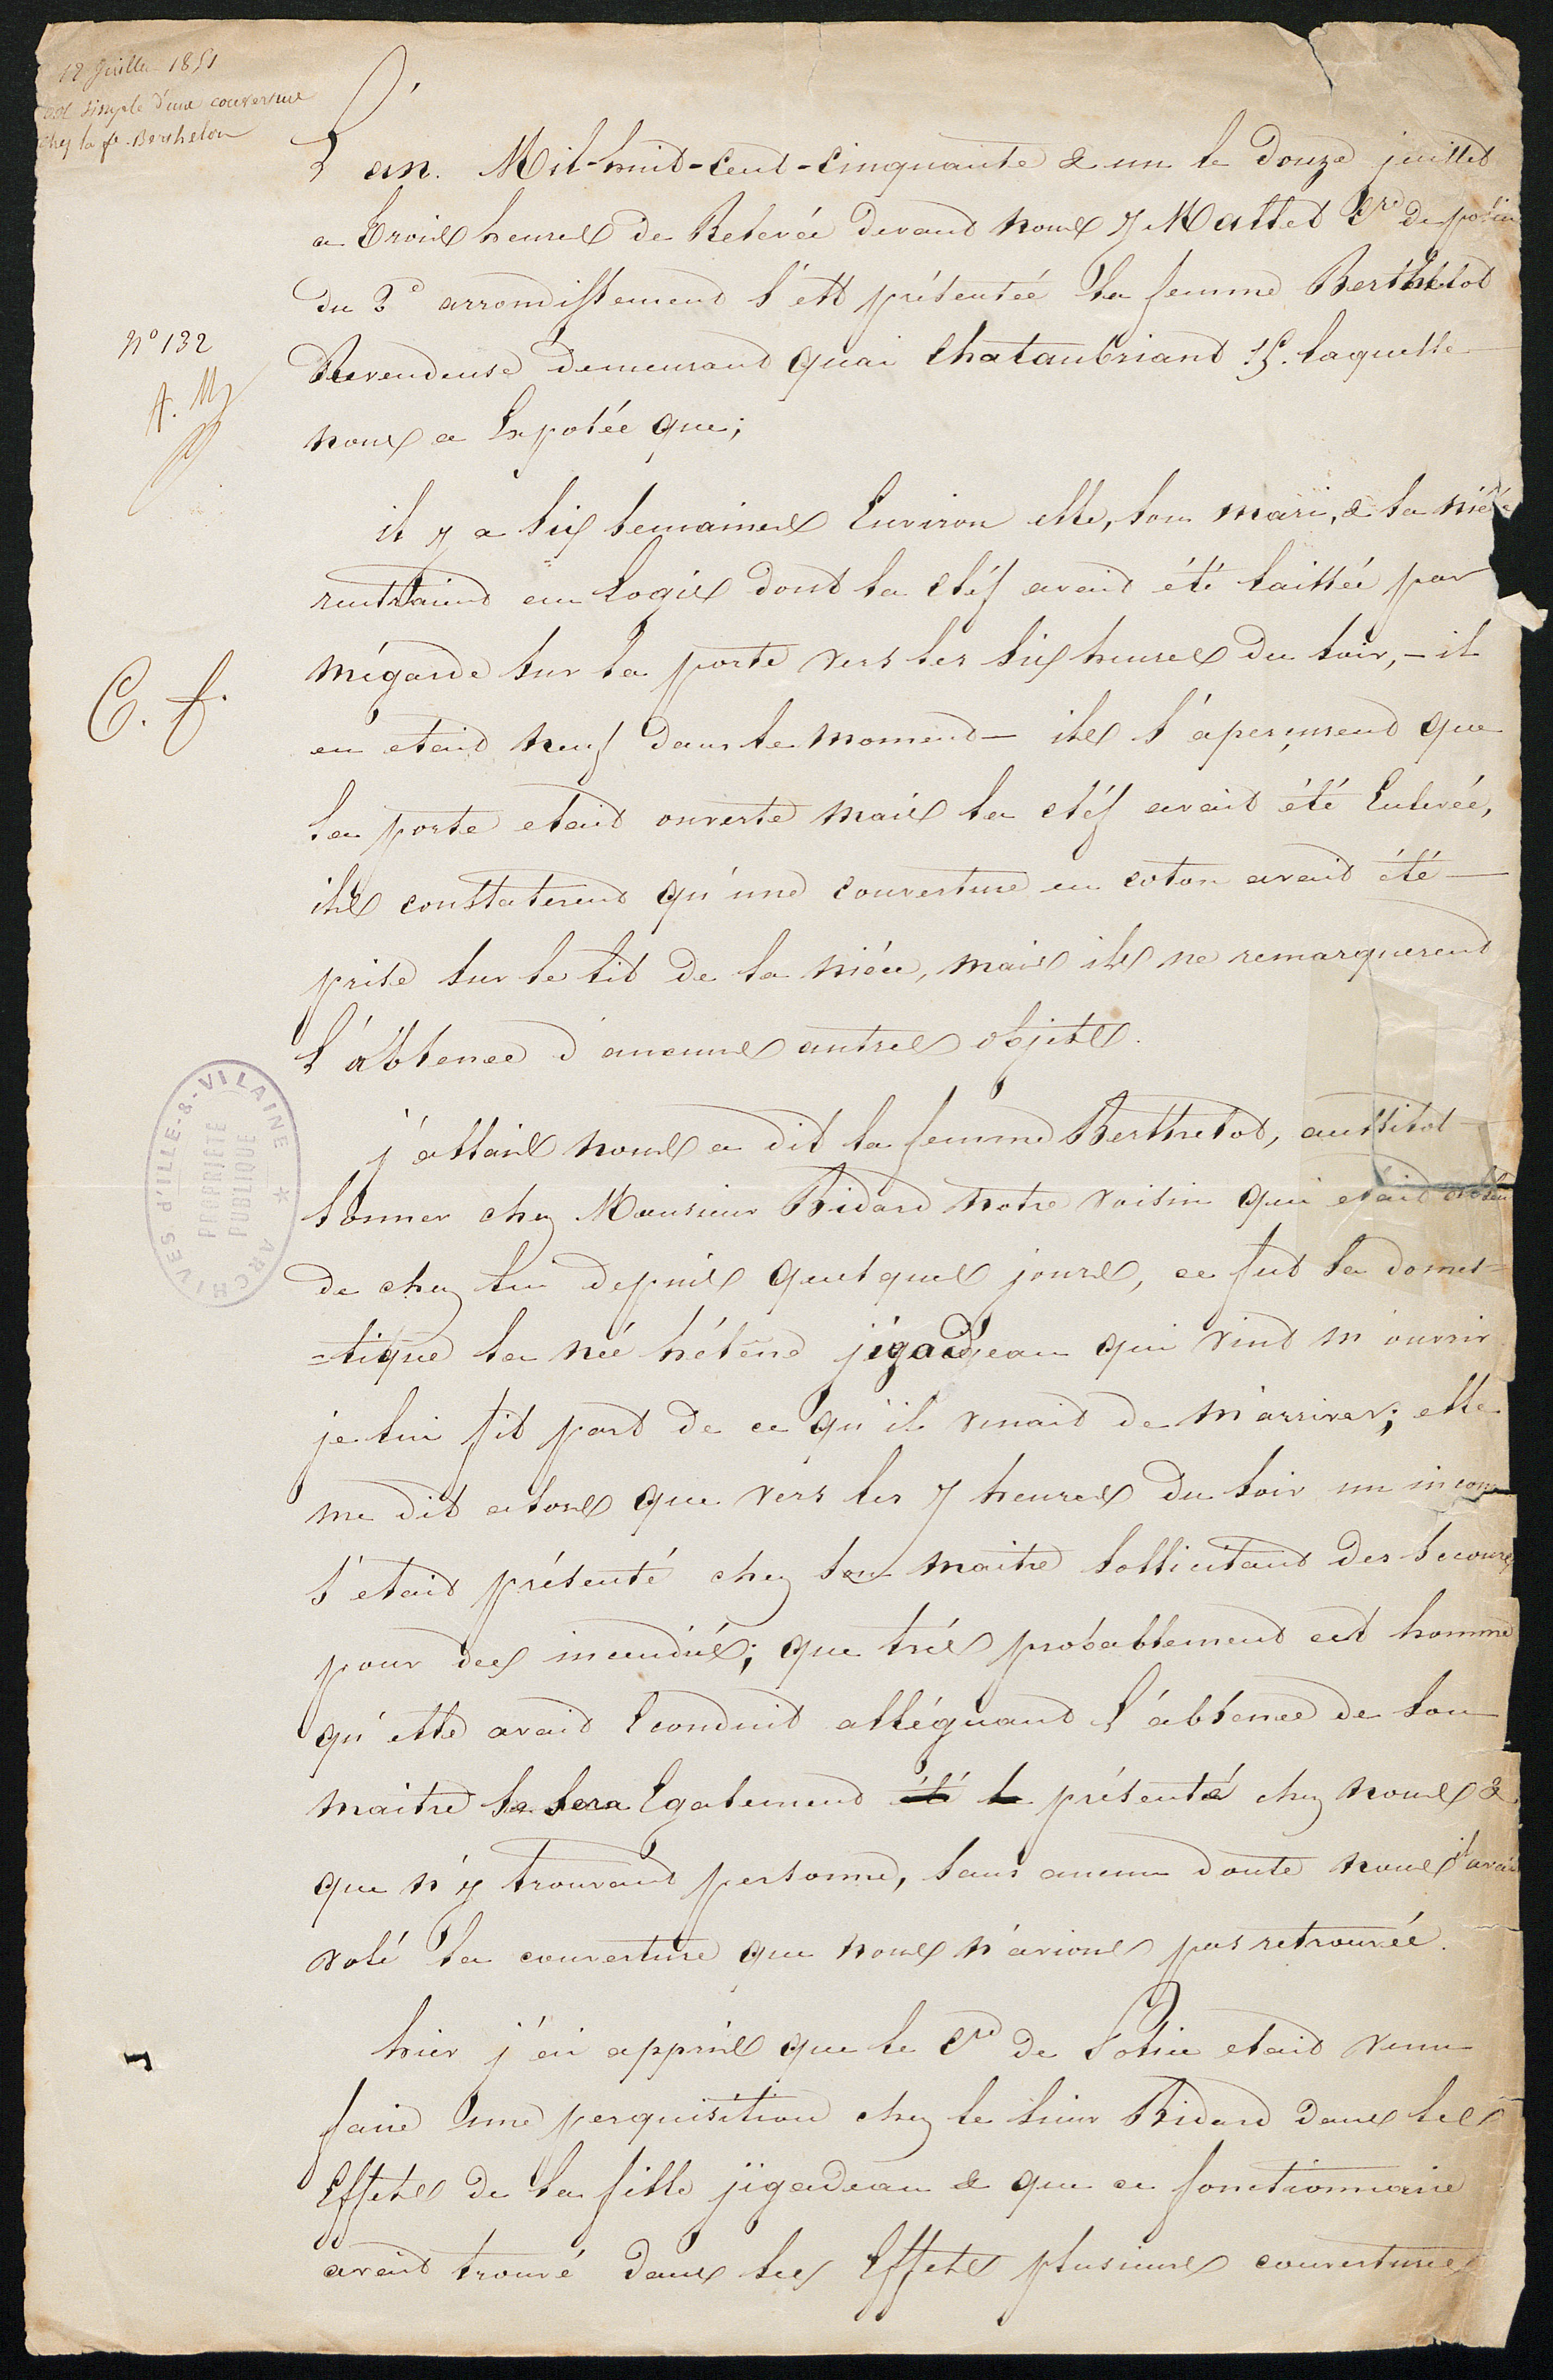 12 Juillet 1851
vol simple d'une couverture
chez la fe Berthelot
L'an. Mil-huit-Cent-Cinquante & un le Douze juillet
a trois heures de Relevée devant nous Y Mattet Cre de police
du 3e arrondissement s'est présentée la femme Berthelot
Revendeuse demeurant quai Chataubriant 15. laquelle
nous a Exposée que;
il y a six semaines Environ elle, son mari, & sa nièce
rentraient au logis dont la cléf avait été laissée par
mégarde sur la porte vers les six heures du soir, - il
en etait neuf dans le moment - ils s'aperçurent que
la porte etait ouverte mais la cléf avait été Enlevée,
ils constaterent qu'une couverture en coton avait été
prise sur le lit de la nièce, mais ils ne remarquerent
l'absence d'aucuns autres objets.
j'allais nous a dit la femme Berthelot, aussitot
sonner chez Monsieur Bidard notre voisin qui etait absent
de chez lui depuis quelques jours, ce fut sa domes=
=tique la née héléne jégadeau qui vint m'ouvrir
je lui fit part de ce qu'il venait de m'arriver; elle
me dit alors que vers les 7 heures du soir un inconnu
s'etait présenté chez son maitre sollicitant des secours
pour des incendiés; que très probablement cet homme
qu'elle avait Econduit alléguant l'absence de son
maitre se sera Egalement été le présenté chez nous &
que n'y trouvant personne, sans aucun doute nous il avait
volé la couverture que nous n'avions pas retrouvée.
hier j'ai appris que le Cre de Police etait venu
faire une perquisition chez le sieur Bidard dans les
Effets de la fille jigadeau & que ce fonctionnaire
avait trouvé dans ses Effets plusieurs couvertures
N° 132
A. M
C. f.
ARCHIVES d'ILLE-&-VILAINE *
PROPRIÉTÉ
PUBLIQUE